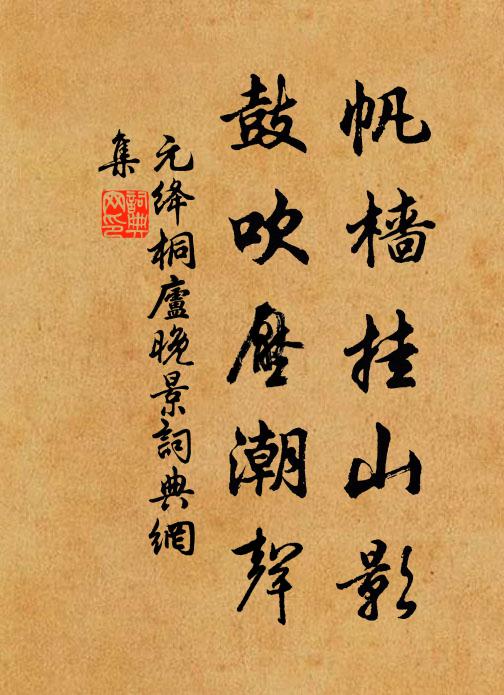 帆樯挂山影
鼓吹压潮聲
元绛桐廬晚景詞典網
集
詞典
网印